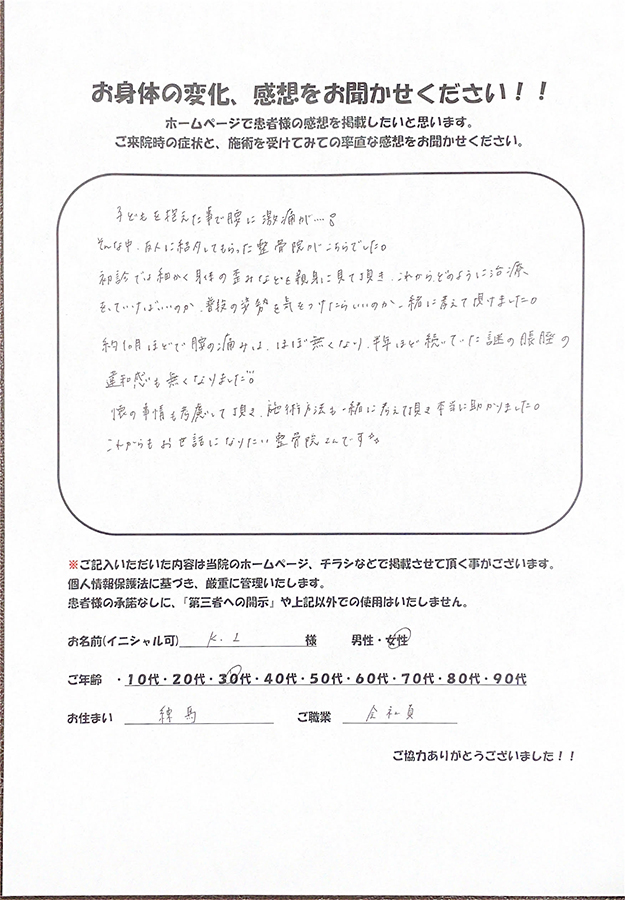 お身体の変化、感想をお聞かせください！！
ホームページで患者様の感想を掲載したいと思います。
ご来院時の症状と、施術を受けてみての率直な感想をお聞かせください。
子どもを抱えた事で腰に激痛が…。
そんな中、友人に紹介してもらった整骨院がこちらでした。
初診では細かく身体の歪みなどを親身に見て頂き、これからどのように治療
をしていけばいいのか、普段の姿勢を気をつけたらいいのか一緒に考えて頂けました。
約1ヶ月ほどで腰の痛みは、ほぼ無くなり、半年ほど続いていた謎の
違和感も無くなりました!!
の事情も考慮して頂き、施術方法も一緒に考えて頂き本当に助かりました。
これからもお世話になりたい整骨院さんです
※ご記入いただいた内容は当院のホームページ、チラシなどで掲載させて頂く事がございます。
個人情報保護法に基づき、厳重に管理いたします。
患者様の承諾なしに、「第三者への開示」や上記以外での使用はいたしません。
お名前(イニシャル可) K.I 様 男性・女性
ご年齢 ・10代・20代・30代・40代・50代・60代・70代・80代・90代
お住まい 練馬 ご職業 会社員
ご協力ありがとうございました！！